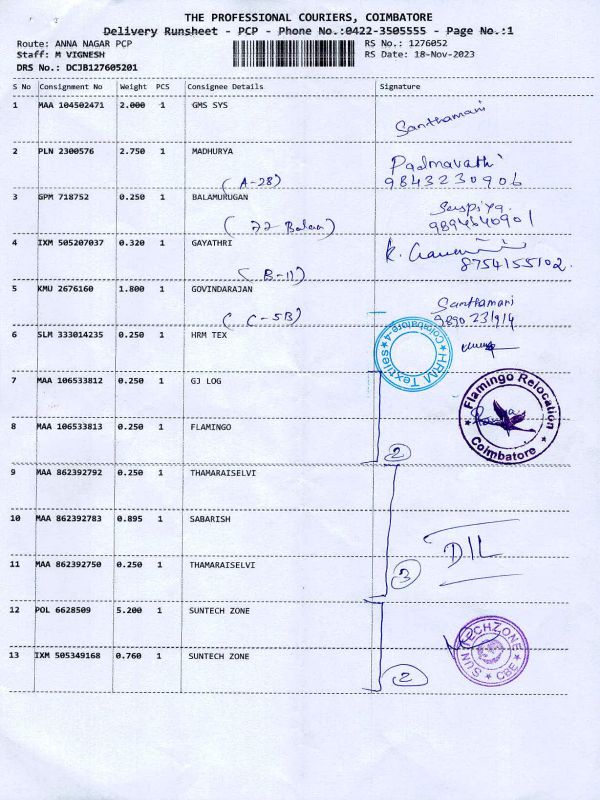 THE PROFESSIONAL COURIERS, COIMBATORE
Delivery Runsheet - PCP - Phone No.:0422-3505555 - Page No.:1
Route: ANNA NAGAR PCP RS No.: 1276052
Staff: M VIGNESH RS Date: 18-Nov-2023
DRS No.: DCJB127605201
S No Consignment No Weight PCS Consignee Details Signature
1 MAA 104502471 2.000 1 GMS SYS
Santhamani
2 PLN 2300576 2.750 1 MADHURYA Padmavathi
(A-28) 9843230906
3 GPM 718752 0.250 1 BALAMURUGAN
9894640901
4 IXM 505207037 0.320 1 GAYATHRI K.
(B-11) 8754155102.
5 KMU 2676160 1.800 1 GOVINDARAJAN Santhamari
(C-5B) 9890231914
6 SLM 333014235 0.250 1 HRM TEX
HRM Textiles Coimbatore-4
7 MAA 106533812 0.250 1 GJ LOG
Flamingo Relocation
Coimbatore
8 MAA 106533813 0.250 1 FLAMINGO
2
9 MAA 862392792 0.250 1 THAMARAISELVI
10 MAA 862392783 0.895 1 SABARISH
11 MAA 862392750 0.250 1 THAMARAISELVI
3
12 POL 6628509 5.200 1 SUNTECH ZONE
SUN TECHZONE CBE
13 IXM 505349168 0.760 1 SUNTECH ZONE
2